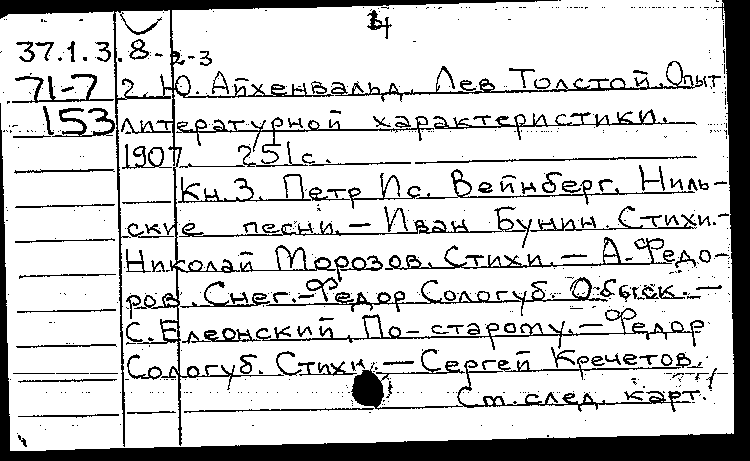 4
37.1.3.8-2-3
71-7 2. Ю. Айхенвальд. Лев Толстой. Опыт
153 литературной характеристики.
1907. 251с.
Кн.3. Петр Ис. Вейнберг. Ниль-
ские песни. — Иван Бунин. Стихи. -
Николай Морозов. Стихи. — А. Федо-
ров. Снег. - Федор Сологуб. Обыск. —
С. Елеонский. По-старому. — Федор
Сологуб. Стихи. — Сергей Кречетов.
См. след. карт.